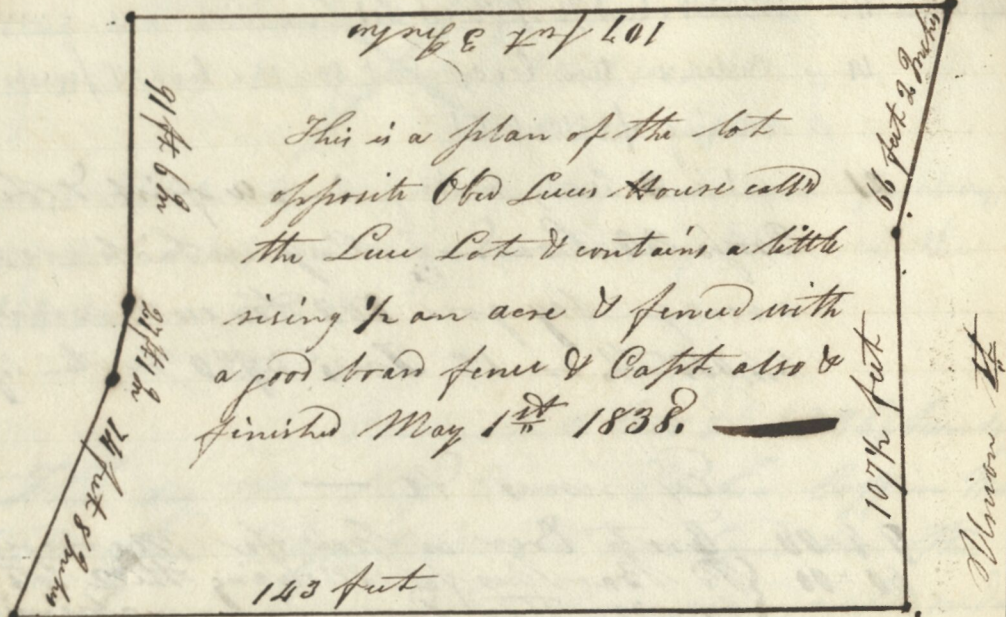 107 feet 3 Inches
91 ft 6 In
66 feet 2 Inches
This is a plan of the Lot
opposite Obed Luces House calld
the Luce Lot & contains a little
rising 1/2 an acre & fenced with
a good board fence & Capt also &
finished May 1st 1838.
ft 1 In
74 feet 8 Inches
107 1/2 feet
Union St
143 feet